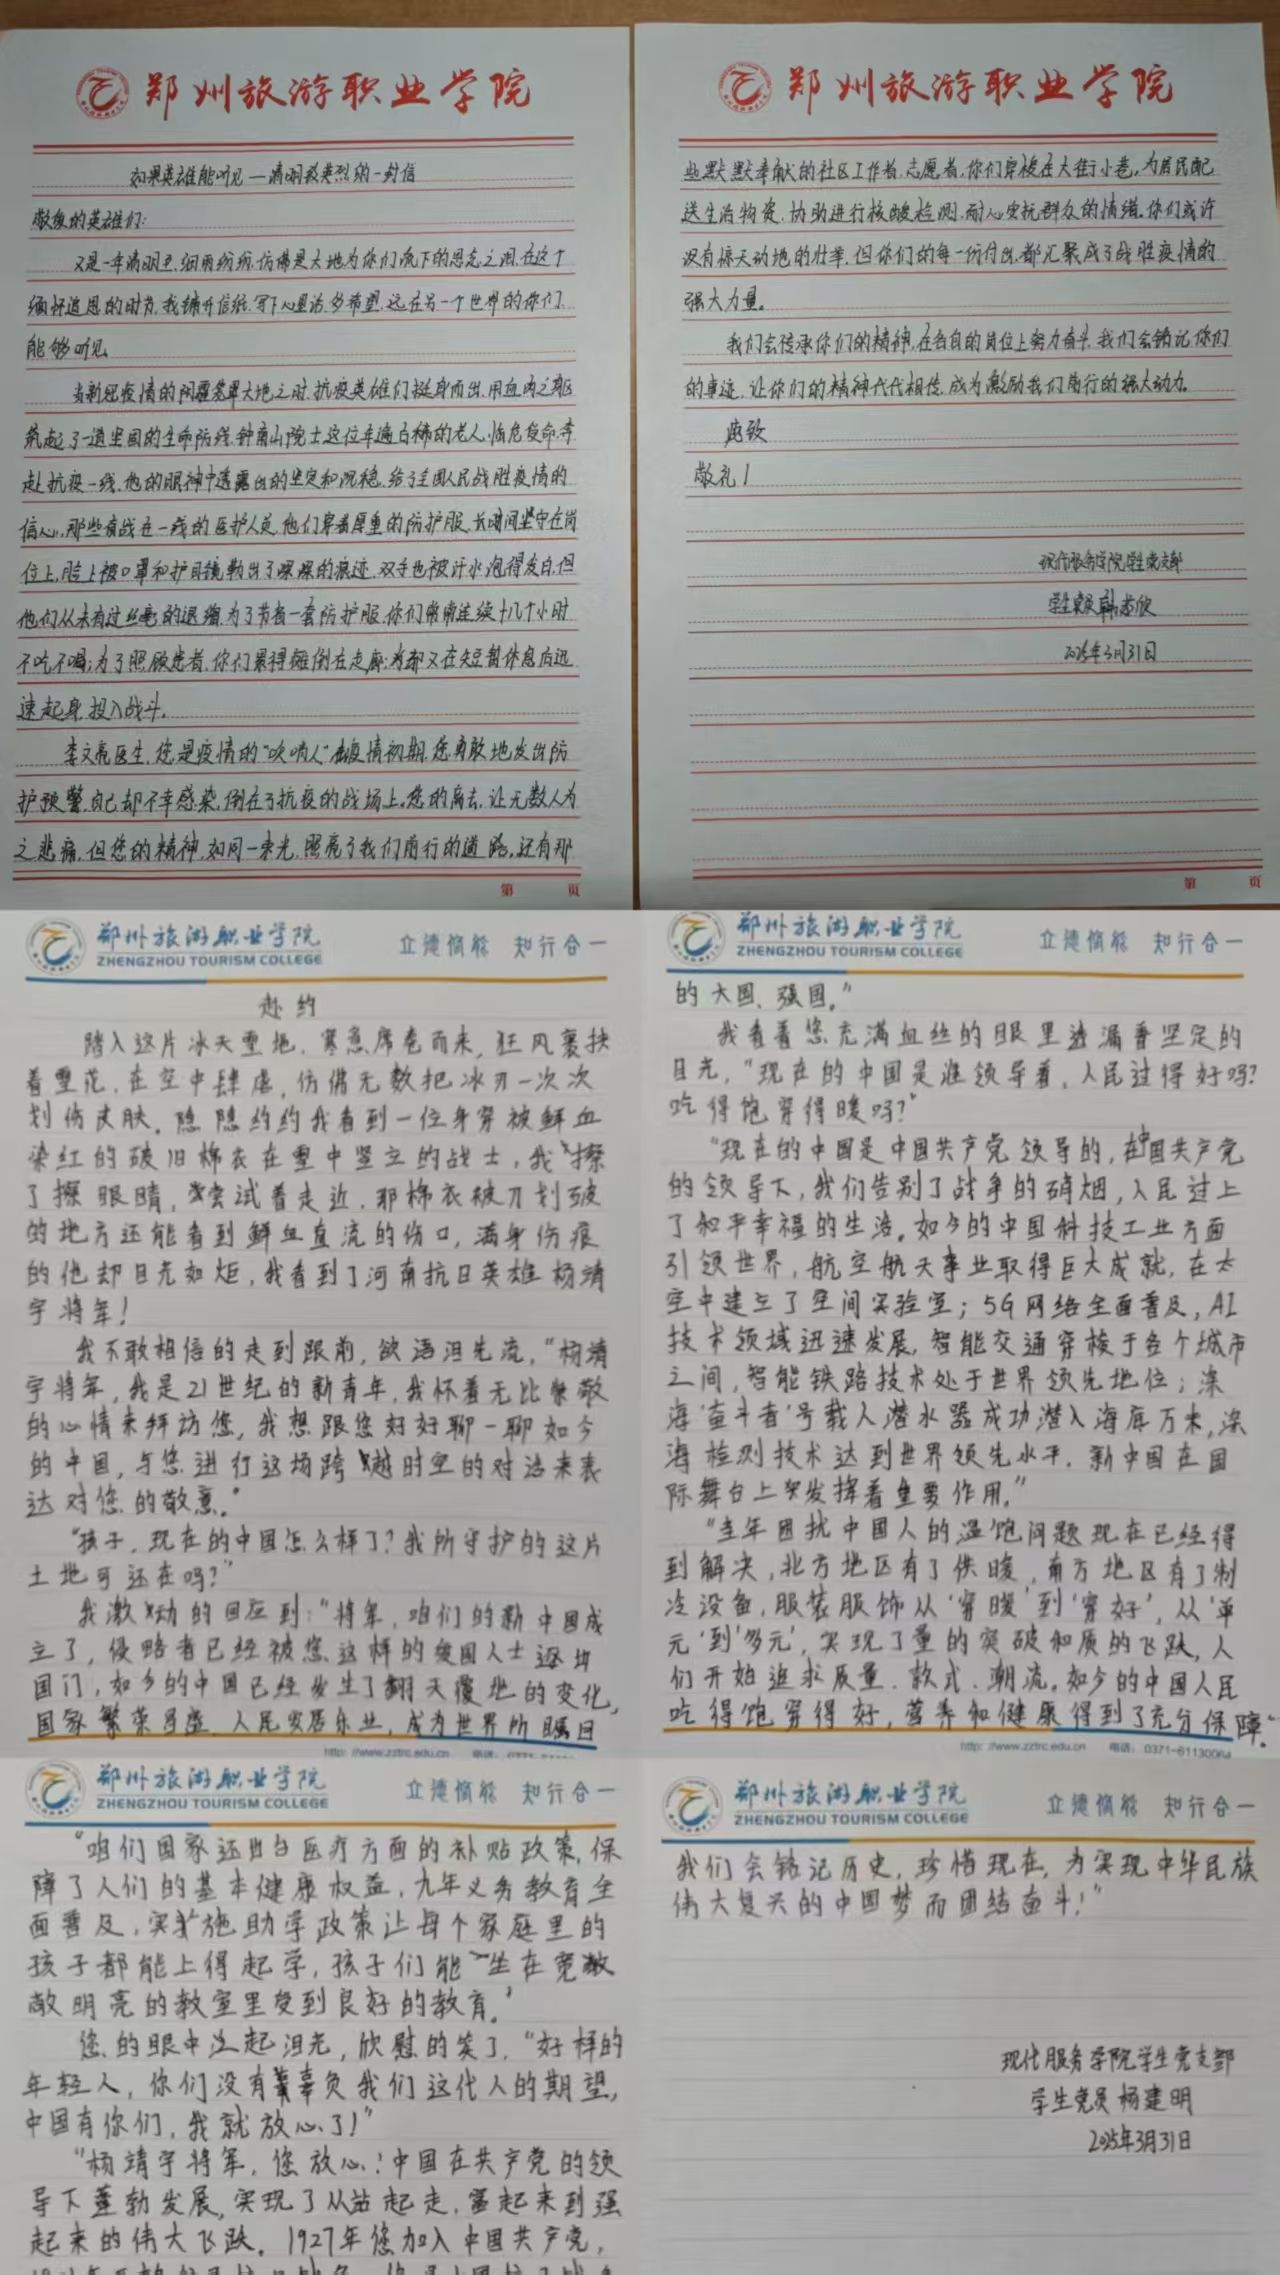 郑州旅游职业学院
如果英雄能听见—清明致英烈的一封信
敬爱的英雄们:
又是一年清明至,细雨纷纷,仿佛是大地为你们流下的思念之泪,在这个
缅怀追思的时节,我铺开信纸,写下心里话,多希望,远在另一个世界的你们,
能够听见。
当新冠疫情的阴霾笼罩大地之时,抗疫英雄们挺身而出,用血肉之躯
筑起了一道坚固的生命防线,钟南山院士这位年逾古稀的老人,临危受命,奔
赴抗疫一线,他的眼神中透露出的坚定和沉稳,给了全国人民战胜疫情的
信心,那些奋战在一线的医护人员,他们穿着厚重的防护服,长时间坚守在岗
位上,脸上被口罩和护目镜勒出了深深的痕迹,双手也被汗水泡得发白,但
他们从未有过丝毫的退缩,为了节省一套防护服,你们常常连续十几个小时
不吃不喝;为了照顾患者,你们累得瘫倒在走廊;有却又在短暂休息后迅
速起身,投入战斗。
李文亮医生,您是疫情的“吹哨人”在疫情初期,您勇敢地发出防
护预警,自己却不幸感染,倒在了抗疫的战场上。您的离去,让无数人为
之悲痛,但您的精神,如同一束光,照亮了我们前行的道路。还有那
第 页
郑州旅游职业学院
些默默奉献的社区工作者,志愿者,你们穿梭在大街小巷,为居民配
送生活物资,协助进行核酸检测,耐心安抚群众的情绪。你们或许
没有惊天动地的壮举,但你们的每一份付出,都汇聚成了战胜疫情的
强大力量。
我们会传承你们的精神,在各自的岗位上努力奋斗,我们会铭记你们
的事迹,让你们的精神代代相传,成为激励我们前行的强大动力。
此致
敬礼!
现代服务学院学生党支部
学生党员
2025年3月31日
第 页
郑州旅游职业学院
ZHENGZHOU TOURISM COLLEGE
立德修能 知行合一
赴约
踏入这片冰天雪地,寒意席卷而来,狂风裹挟
着雪花,在空中肆虐,仿佛无数把冰刃一次次
划伤皮肤。隐隐约约我看到一位身穿被鲜血
染红的破旧棉衣在雪中竖立的战士,我擦
了擦眼睛,尝试着走近,那棉衣被刀划破
的地方还能看到鲜血直流的伤口,满身伤痕
的他却目光如炬,我看到了河南抗日英雄杨靖
宇将军!
我不敢相信的走到跟前,欲语泪先流,“杨靖
宇将军,我是21世纪的新青年,我怀着无比崇敬
的心情来拜访您,我想跟您好好聊一聊如今
的中国,与您进行这场跨越时空的对话来表
达对您的敬意。”
“孩子,现在的中国怎么样了?我所守护的这片
土地可还在吗?”
我激动的回应到:“将军,咱们的新中国成
立了,侵略者已经被您这样的爱国人士逐出
国门,如今的中国已经发生了翻天覆地的变化,
国家繁荣昌盛,人民安居乐业,成为世界所瞩目
http://www.zztrc.edu.cn
郑州旅游职业学院
ZHENGZHOU TOURISM COLLEGE
立德修能 知行合一
的大国、强国。”
我看着您充满血丝的眼里透漏着坚定的
目光,“现在的中国是谁领导着,人民过得好吗?
吃得饱穿得暖吗?”
“现在的中国是中国共产党领导的,在中国共产党
的领导下,我们告别了战争的硝烟,人民过上
了和平幸福的生活。如今的中国科技工业方面
引领世界,航空航天事业取得巨大成就,在太
空中建立了空间实验室;5G网络全面普及,AI
技术领域迅速发展,智能交通穿梭于各个城市
之间,智能铁路技术处于世界领先地位;深
海‘奋斗者’号载人潜水器成功潜入海底万米,深
海检测技术达到世界领先水平,新中国在国
际舞台上突发挥着重要作用。”
“当年困扰中国人的温饱问题现在已经得
到解决,北方地区有了供暖,南方地区有了制
冷设备,服装服饰从‘穿暖’到‘穿好’,从‘单
元’到‘多元’,实现了量的突破和质的飞跃,人
们开始追求质量、款式、潮流。如今的中国人民
吃得饱穿得好,营养和健康得到了充分保障。”
http://www.zztrc.edu.cn 电话:0371-6113006
郑州旅游职业学院
ZHENGZHOU TOURISM COLLEGE
立德修能 知行合一
“咱们国家还出台医疗方面的补贴政策,保
障了人们的基本健康权益,九年义务教育全
面普及,实施助学政策让每个家庭里的
孩子都能上得起学,孩子们能坐在宽敞
敞明亮的教室里受到良好的教育。”
您的眼中泛起泪光,欣慰的笑了,“好样的
年轻人,你们没有辜负我们这代人的期望,
中国有你们,我就放心了!”
“杨靖宇将军,您放心!中国在共产党的领
导下蓬勃发展,实现了从站起走,富起来到强
起来的伟大飞跃。1927年您加入中国共产党,
郑州旅游职业学院
ZHENGZHOU TOURISM COLLEGE
立德修能 知行合一
我们会铭记历史,珍惜现在,为实现中华民族
伟大复兴的中国梦而团结奋斗!”
现代服务学院学生党支部
学生党员 杨建明
2025年3月31日